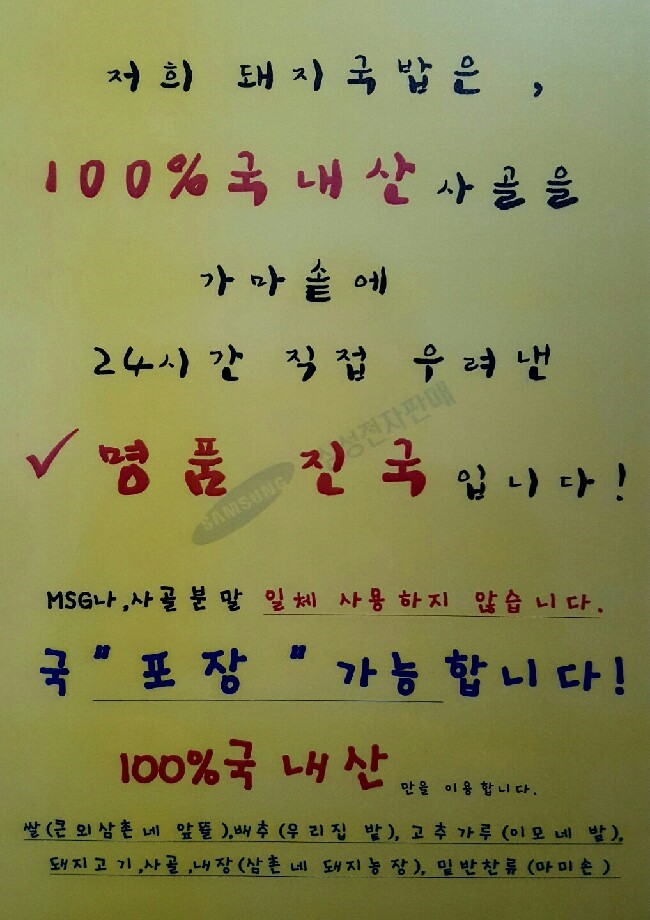 저희 돼지국밥은,
100%국내산 사골을
가마솥에
24시간 직접 우려낸
✓명품 진국 입니다!
SAMSUNG 삼성전자판매
MSG나,사골분말 일체 사용하지 않습니다.
국 "포장" 가능합니다!
100%국내산 만을 이용합니다.
쌀(큰외삼촌네 앞뜰),배추(우리집 밭), 고추가루(이모네 밭),
돼지고기,사골,내장(삼촌네 돼지농장), 밑반찬류(아미손)